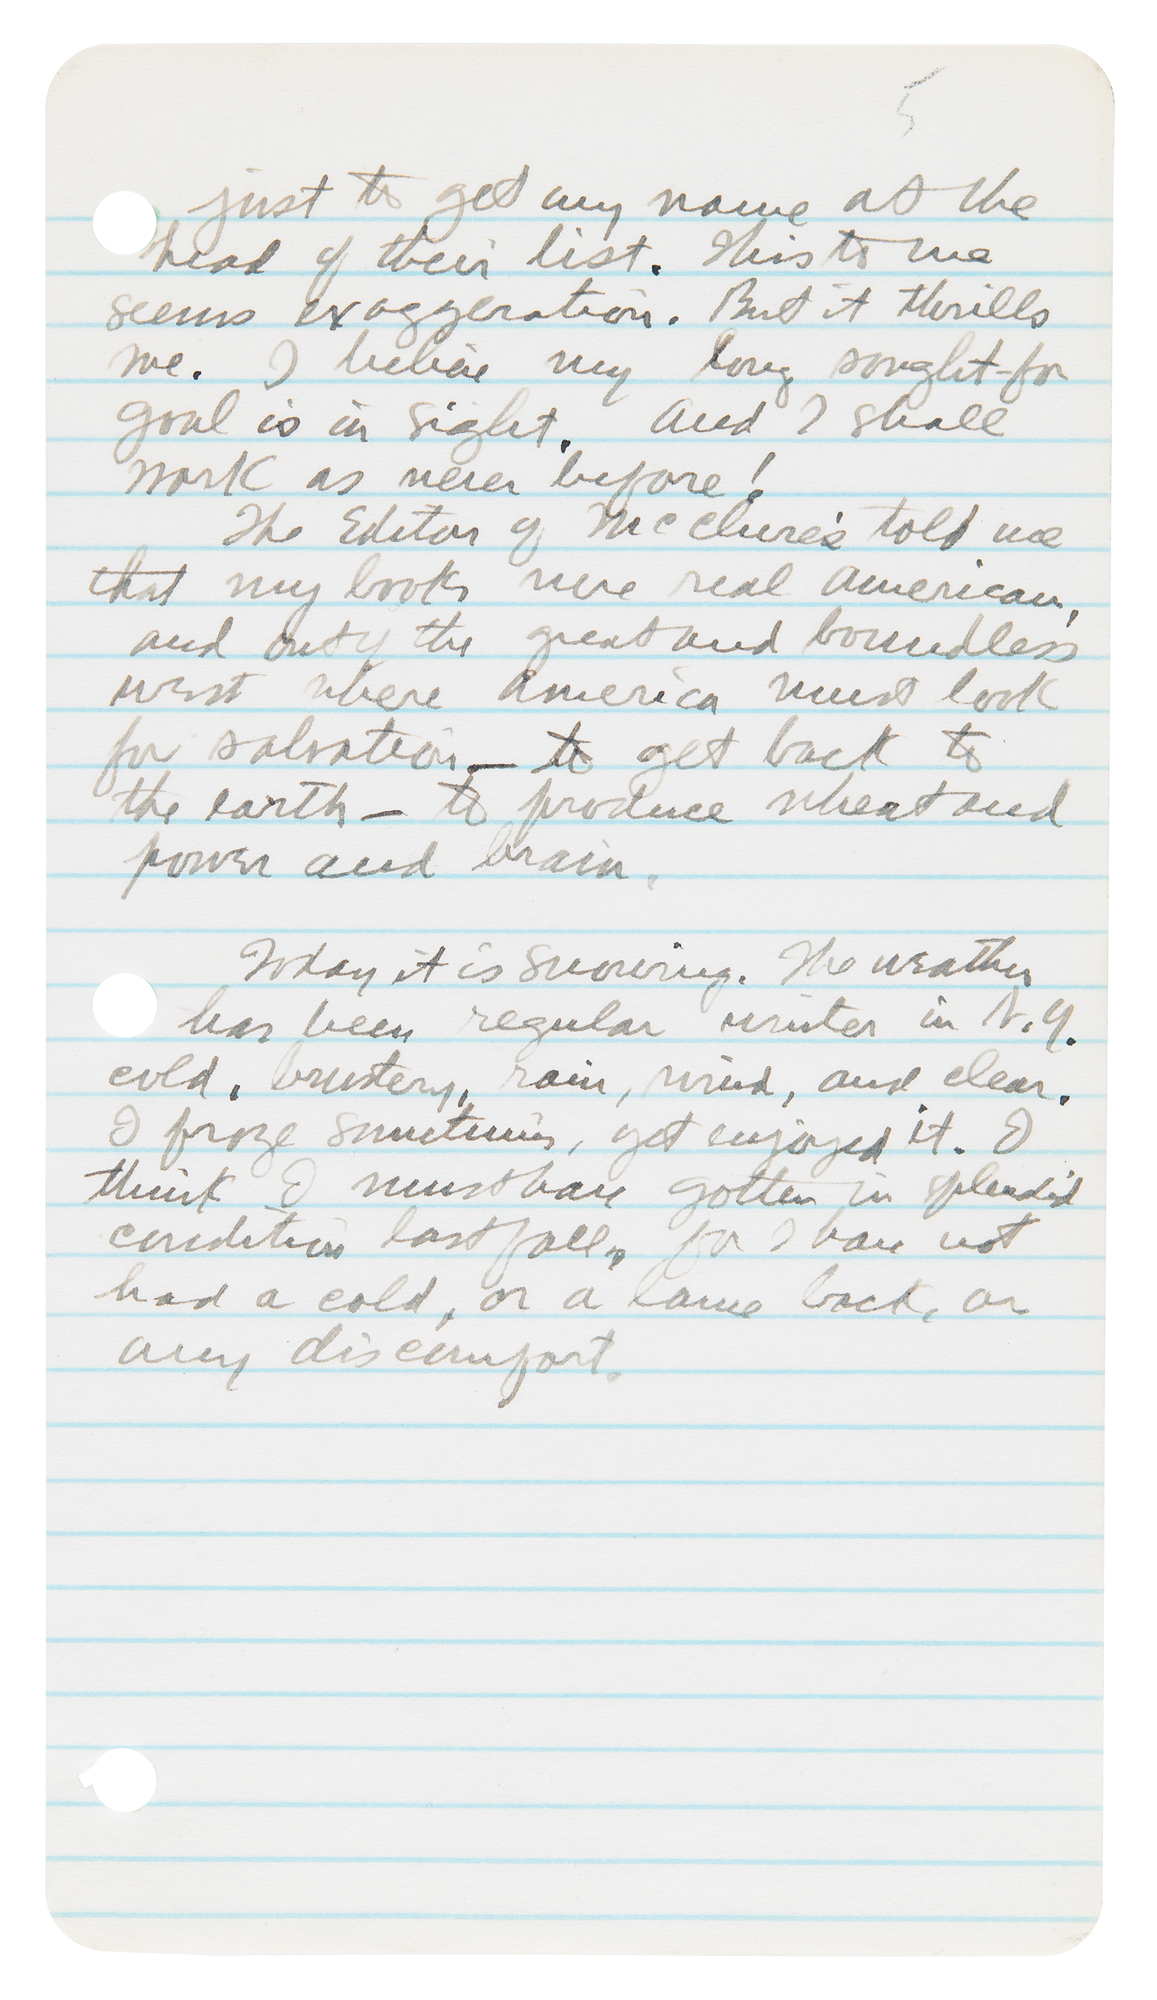 5
just to get my name at the
head of their list. This to me
seems exaggeration. But it thrills
me. I believe my long sought-for
goal is in sight. And I shall
work as never before!
The Editor of McClure's told me
that my books were real American,
and only the great and boundless
west where America must look
for salvation — to get back to
the earth — to produce wheat and
power and brain.
Today it is snowing. The weather
has been regular winter in N.Y.
cold, brustery, rain, wind, and clear.
I froze sometimes, yet enjoyed it. I
think I must have gotten in splendid
condition last fall, for I have not
had a cold, or a lame back, or
any discomfort.